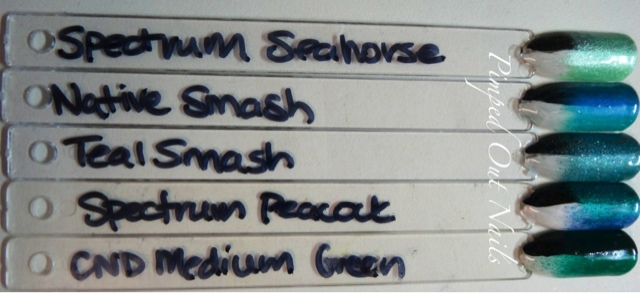 Spectrum Seahorse
Native Smash
Teal Smash
Spectrum Peacock
CND Medium Green
Pimped Out Nails